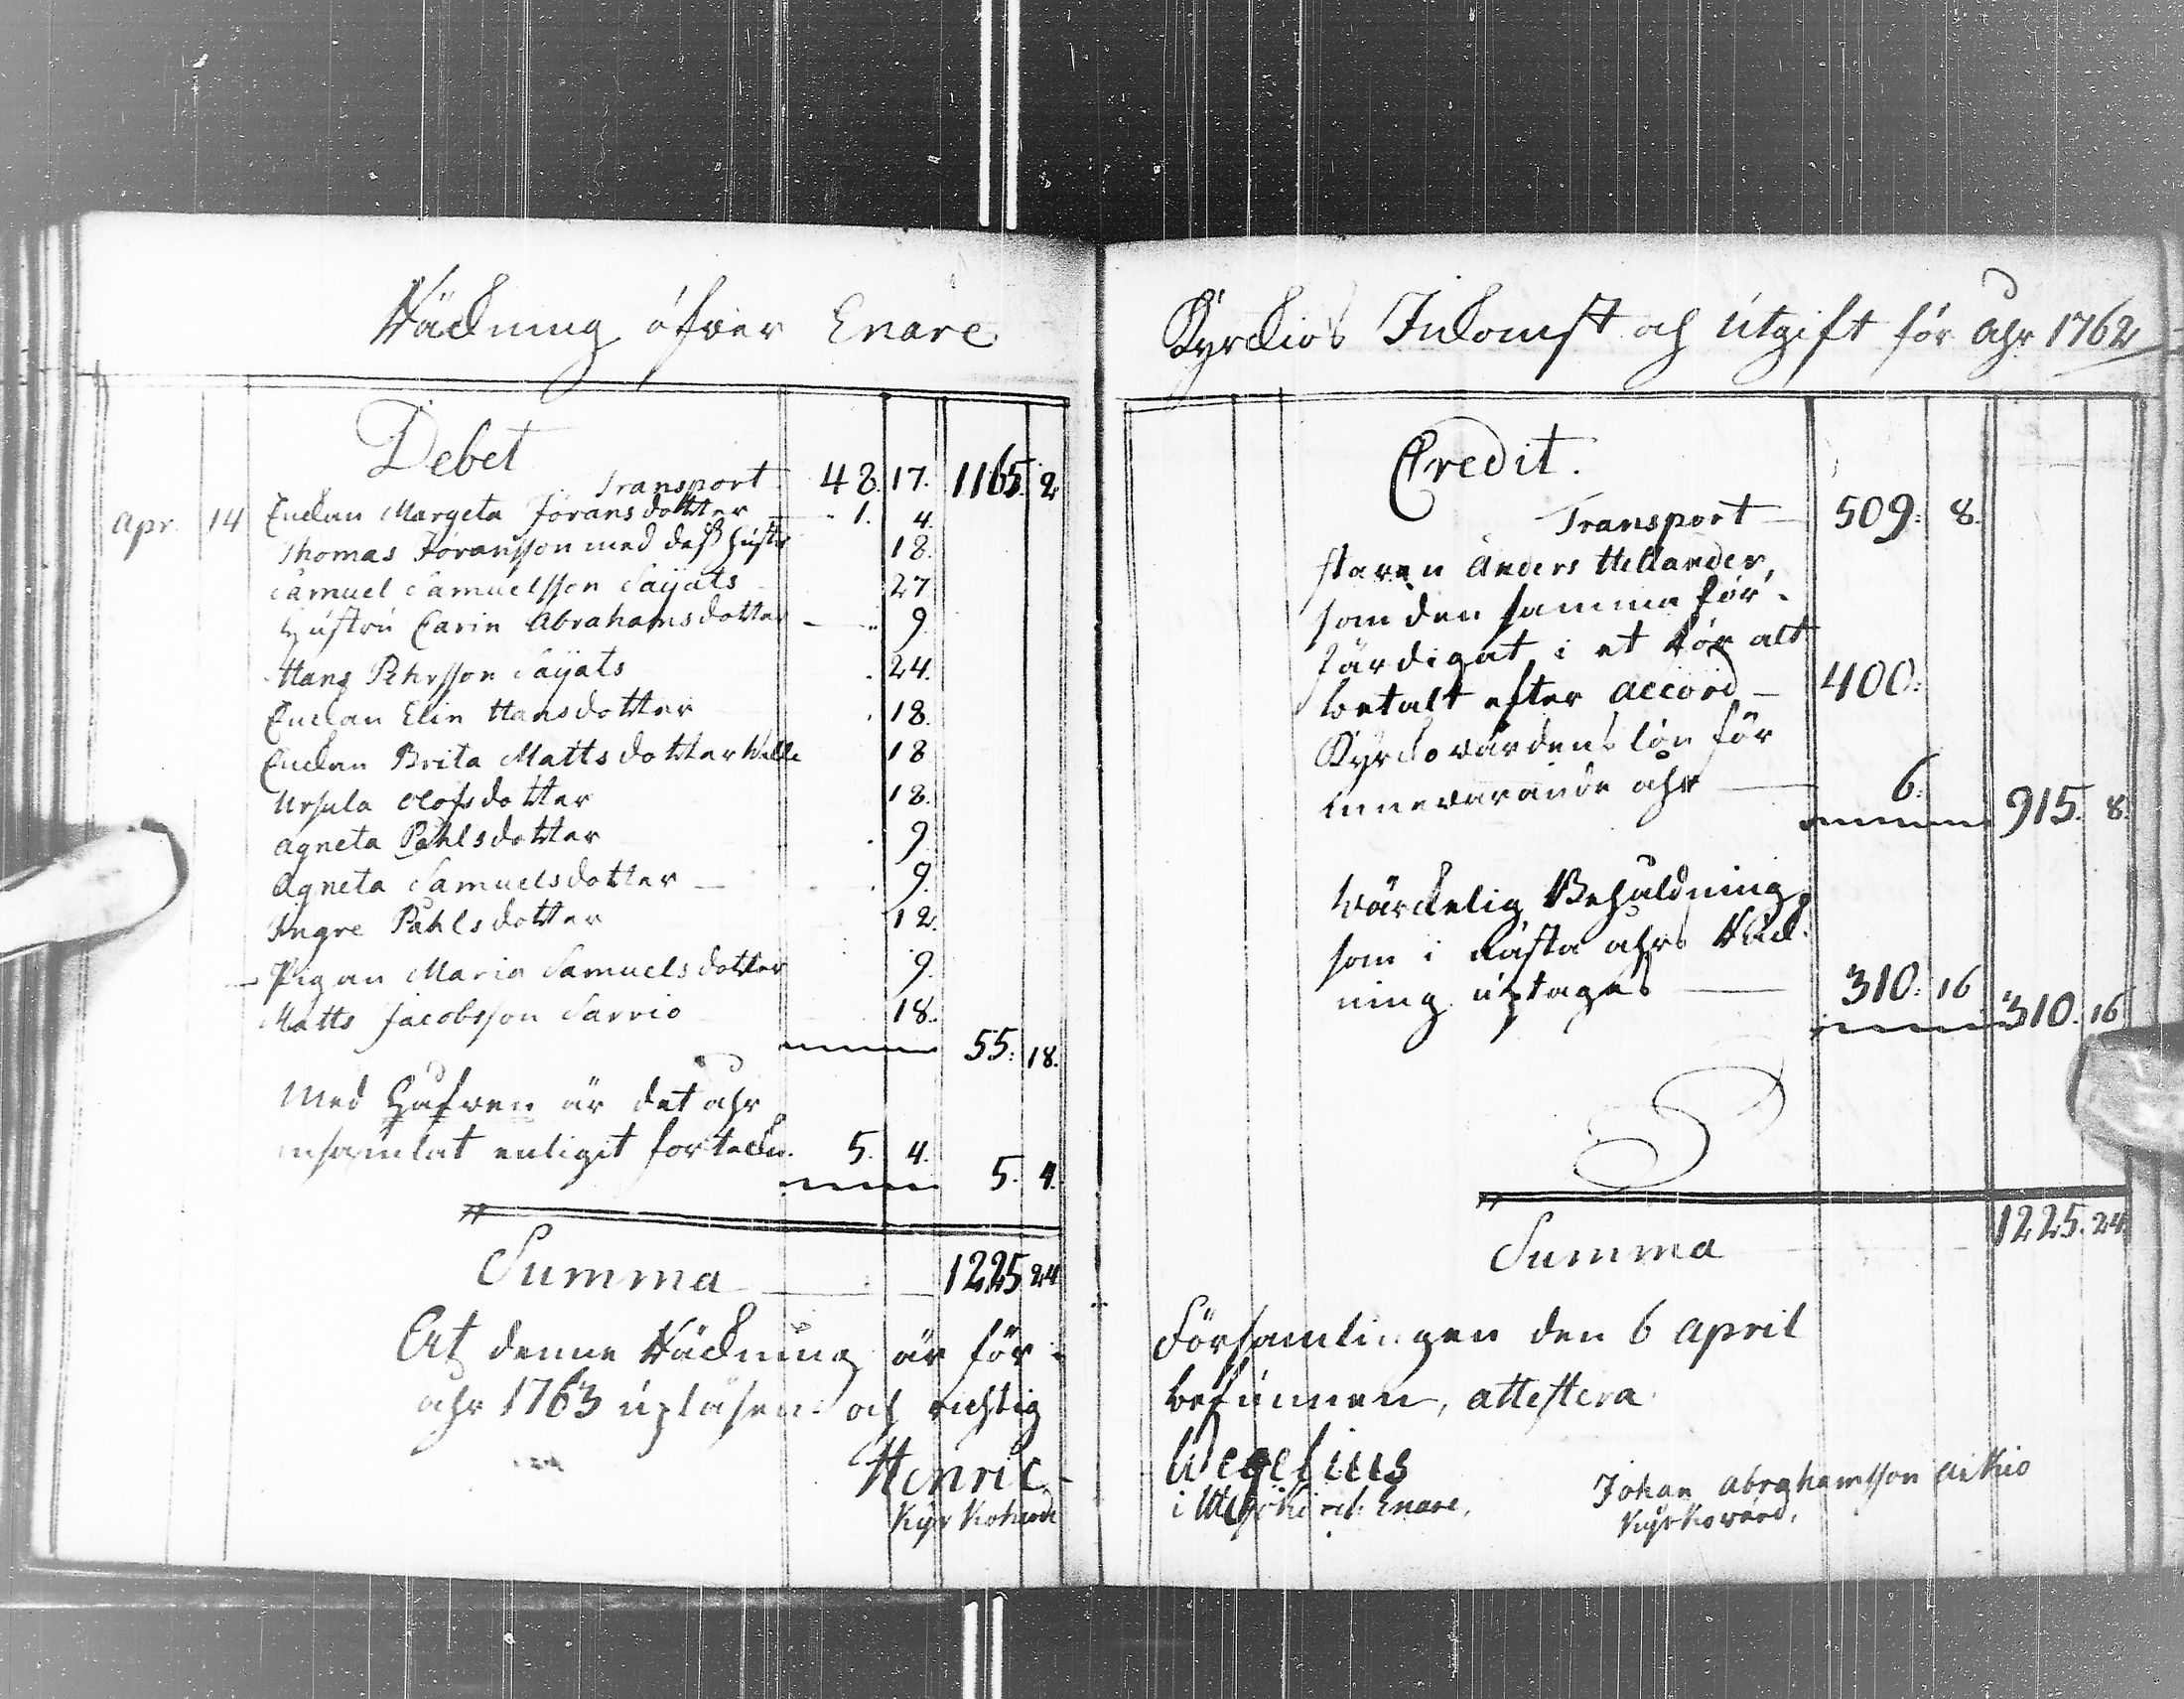 Räckning öfver Enare
Debet
Transport 48. 17. 1165. 2
Apr. 14 Enckan Margeta Joransdotter 1. 4.
Thomas Joransson med dess hustr 18.
Samuel Samuelsson Saijats 27
Hustru Carin Abrahamsdotter 9.
Hans Pehrsson Saijats 24.
Enckan Elin Hansdotter 18.
Enckan Brita Mattsdotter Walle 18
Ursula Olofsdotter 18.
Agneta Påhlsdotter 9.
Agneta Samuelsdotter 9.
Ingre Påhlsdotter 12.
Pigan Maria Samuelsdotter 9.
Matts Jacobsson Sarvio 18.
55. 18.
Med Håfven är det åhr
insamlat enligit forteckn. 5. 4.
5. 4.
Summa 1225 24
At denne Räckning är för
åhr 1763 upläsen och richtig
Henric
Kyrkoherde
Kyrckios Inkomst och Utgift för åhr 1762
Credit.
Transport 509: 8.
staren Anders Hellander,
som den samma för-
färdigat i et för alt
betalt efter accord 400:
Kyrckovärdens lön för
innevarande åhr 6:
915. 8.
Wärckelig Behåldning,
som i nästa åhrs Räck-
ning uptages 310: 16
310. 16
Summa 1225. 24
Församlingen den 6 April
befunnen, attestera
Wegelius
i Utsjoki och Enare.
Johan Abrahamsson Aikio
Kyrkovärd.